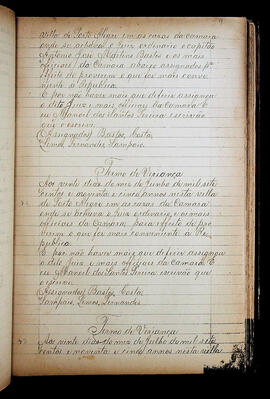 Villa de Porto Alegre em as casas da camara
onde se achava o Juiz ordinario o capitão
Antonio José Martins Bastos e os mais
officiaes da Camara abaixo assignados p.ª
effeito de proverem o que for mais conve
niente á Republica.
E por não haver mais que deferir assignou
o dito Juiz e mais officiaes da Camara. E
eu Manoel dos Santos escrivão
que o escrevi.
(Assignados) Bastos, Costa,
Lemos, Fernandes, Sampaio.
Termo de Veriança
Aos vinte dias do mez de Junho de mil sete
centos e noventa e cinco annos nesta villa
de Porto Alegre em as casas da Camara
onde se achava o Juiz ordinario, e os mais
officiaes da Camara, para effeito de pro
verem o que for mais conveniente á Re
publica.
E por não haver mais que deferir assignou
o dito Juiz e mais officiaes da Camara. E
eu Manoel dos Santos escrivão que
o escrevi.
(Assignados) Bastos, Costa,
Sampaio, Lemos, Fernandes.
Termo de Veriança
Aos vinte dias do mez de Julho de mil sete
centos e noventa e cinco annos nesta villa